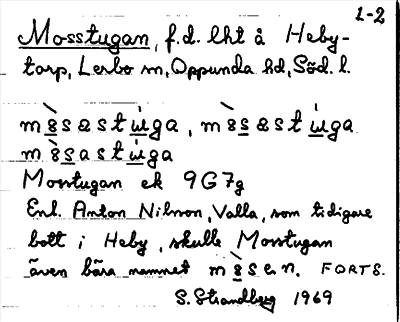 1-2
Mosstugan, f.d. lht å Heby-
torp, Lerbo sn, Oppunda hd, Söd. l.
mòsastùga, mòsastùga
mòsastùga
Mosstugan ek 9G7g
Enl. Anton Nilsson, Valla, som tidigare
bott i Heby, skulle Mosstugan
även bära namnet mòsen. FORTS.
S. Strandberg 1969